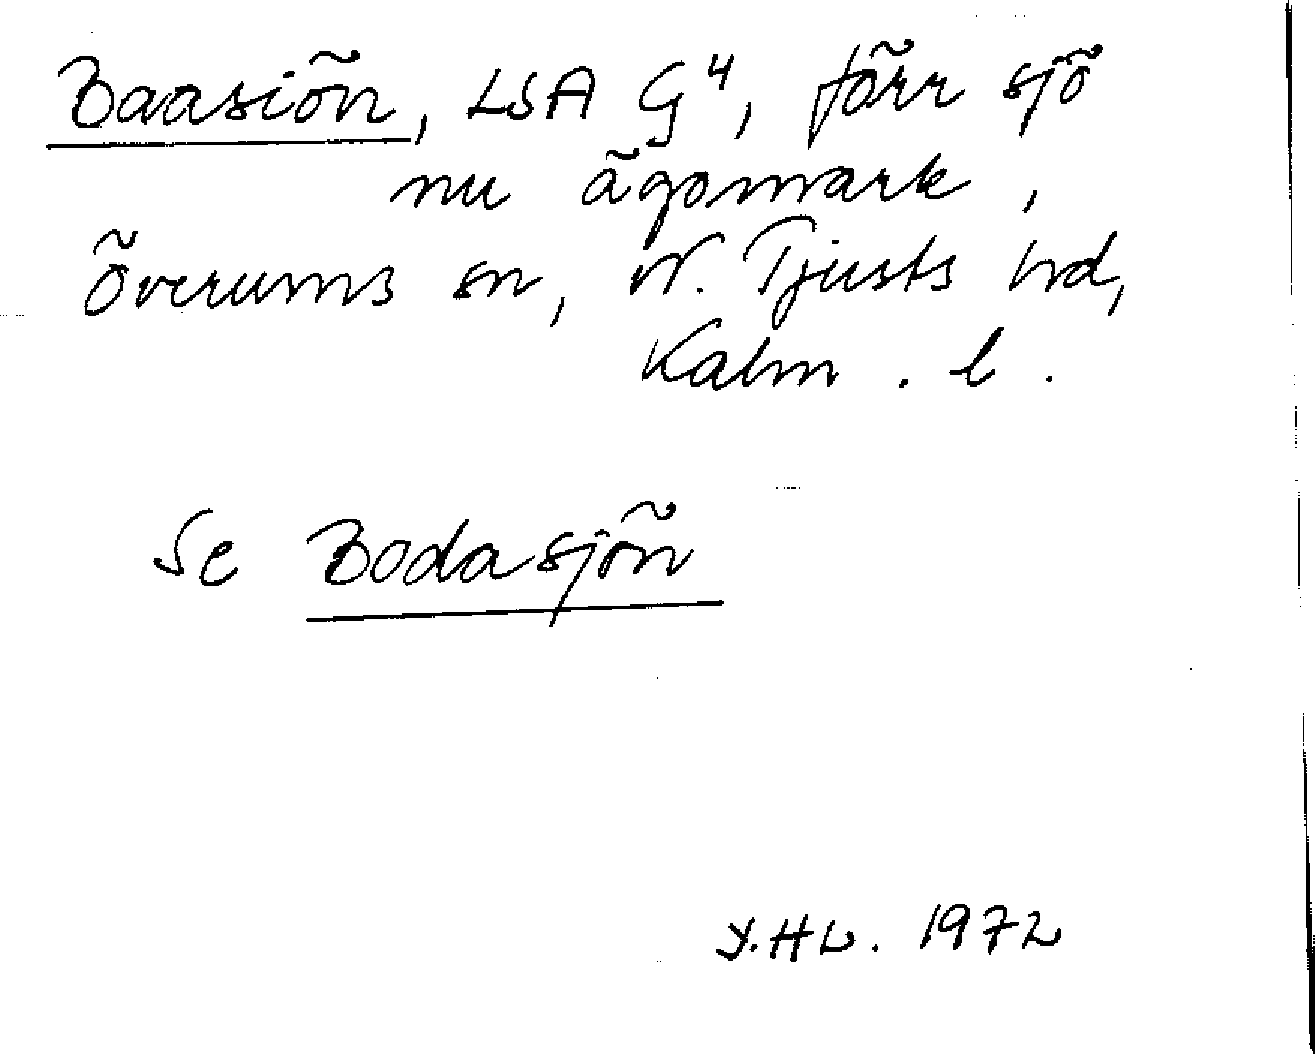 Baasiön, LSA G⁴, förr sjö
nu ägomark,
Överums sn, N. Tjusts hd,
Kalm. l.
Se Bodasjön
Y.HL. 1972